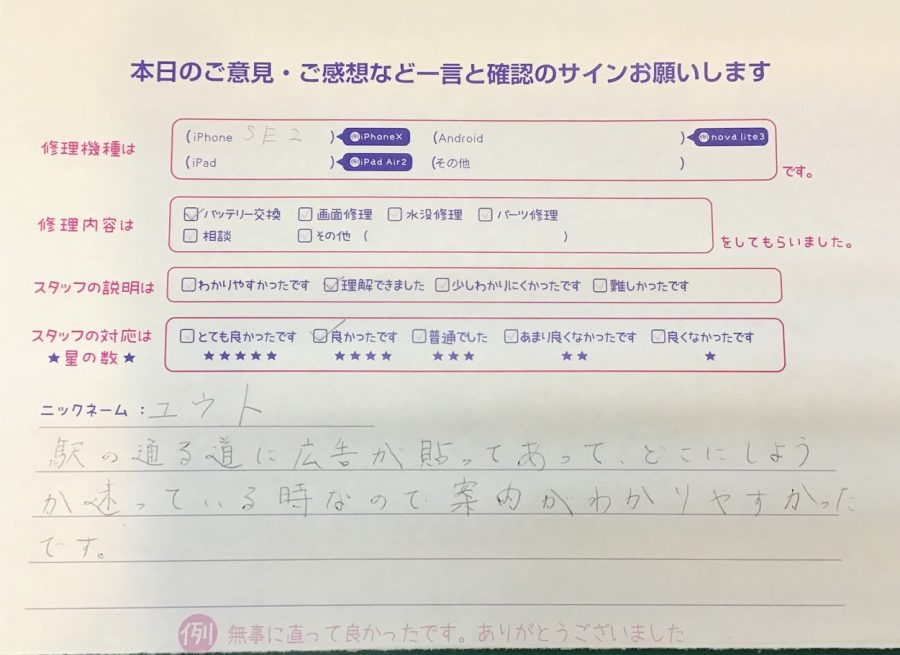 本日のご意見・ご感想など一言と確認のサインお願いします
修理機種は (iPhone SE2 ) iPhoneX (Android ) nova lite3
(iPad ) iPad Air2 (その他 ) です。
修理内容は バッテリー交換 画面修理 水没修理 パーツ修理
相談 その他 ( ) をしてもらいました。
スタッフの説明は わかりやすかったです 理解できました 少しわかりにくかったです 難しかったです
スタッフの対応は とても良かったです 良かったです 普通でした あまり良くなかったです 良くなかったです
★星の数★ ★★★★★ ★★★★ ★★★ ★★ ★
ニックネーム：ユウト
駅の通る道に広告が貼ってあって、どこにしよう
か迷っている時なので案内がわかりやすかった
です。
例 無事に直って良かったです。ありがとうございました